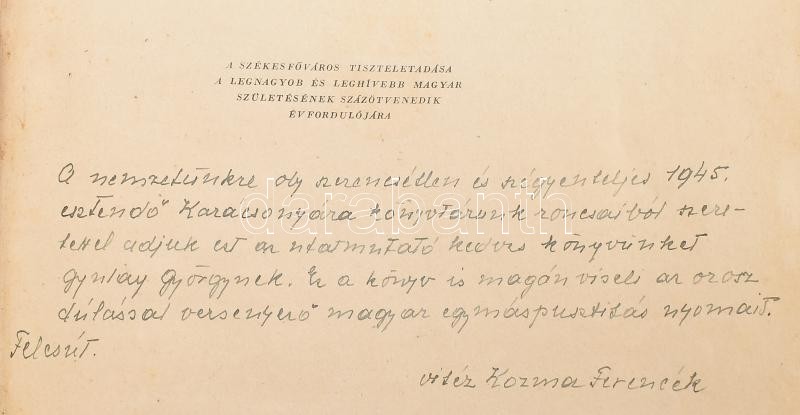 A SZÉKESFŐVÁROS TISZTELETADÁSA
A LEGNAGYOB ÉS LEGHÍVEBB MAGYAR
SZÜLETÉSÉNEK SZÁZÖTVENEDIK
ÉVFORDULÓJÁRA
A nemzetünkre oly szerencsétlen és szégyenteljes 1945.
esztendő Karácsonyára könyvtárunk roncsaiból szere-
tettel adjuk ezt az utatmutató kedves könyvünket
Gyulay Györgynek. Ez a könyv is magán viseli az orosz
dúlással versenyző magyar egymáspusztitás nyomait.
Felcsút.
vitéz Kozma Ferencék
darabanth